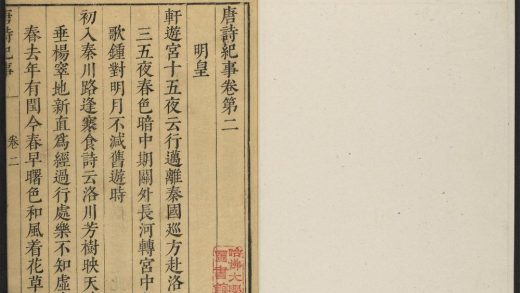 唐詩紀事卷第二
明皇
軒遊宮十五夜云行邁離秦國巡方赴洛
三五夜春色暗中期關外長河轉宮中
歌鍾對明月不減舊遊時
初入秦川路逢寒食詩云洛川芳樹映天
垂楊窣地新直為經過行處樂不知虛
春去年有閏今春早曙色和風着花草
唐詩紀事 卷二
哈佛大學
圖書館